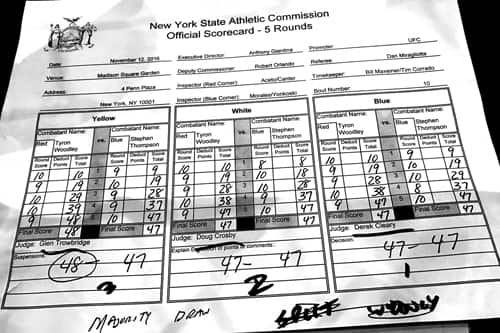 New York State Athletic Commission
Official Scorecard - 5 Rounds
Date November 12, 2016 Executive Director: Anthony Giardina Promoter: UFC
Venue: Madison Square Garden Deputy Commissioner: Robert Orlando Referee: Dan Miragliotta
Address: 4 Penn Plaza Inspector (Red Corner): Aceto/Center Timekeeper:
New York, NY 10001 Inspector (Blue Corner): Bout Number: 10
Yellow
Combatant Name: vs. Combatant Name:
Red Tyron Woodley Blue Stephen Thompson
Round Score Deduct Points Score Total Round Score Deduct Points Score Total
10 10 1 9 9
9 19 2 10 19
10 29 3 9 28
10 39 4 9 37
9 48 5 10 47
Final Score 48 Final Score 47
Judge: Glen Trowbridge
Suspensions:
48 - 47
3
White
Combatant Name: vs. Combatant Name:
Red Tyron Woodley Blue Stephen Thompson
Round Score Deduct Points Score Total Round Score Deduct Points Score Total
10 10 1 8 8
9 19 2 10 18
9 28 3 10 28
10 38 4 9 37
9 47 5 10 47
Final Score 47 Final Score 47
Judge: Doug Crosby
Explain Deduction of points or comments:
47 - 47
2
Blue
Combatant Name: vs. Combatant Name:
Red Tyron Woodley Blue Stephen Thompson
Round Score Deduct Points Score Total Round Score Deduct Points Score Total
10 10 1 9 9
9 19 2 10 19
9 28 3 10 29
10 38 4 8 37
9 47 5 10 47
Final Score 47 Final Score 47
Judge: Derek Cleary
Decision:
47 - 47
1
MAJORITY DRAW